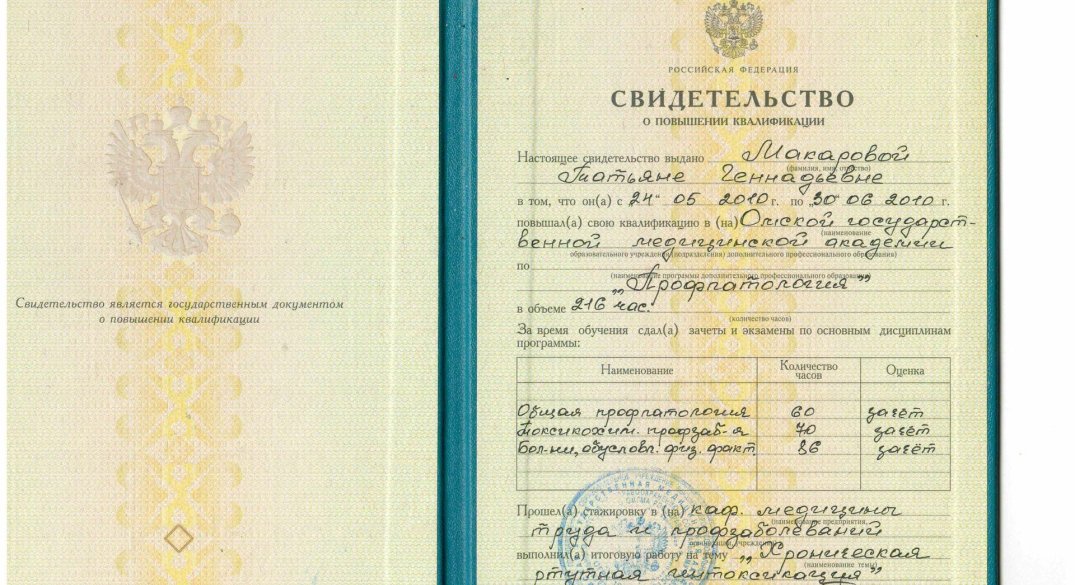 Свидетельство является государственным документом
о повышении квалификации
РОССИЙСКАЯ ФЕДЕРАЦИЯ
СВИДЕТЕЛЬСТВО
О ПОВЫШЕНИИ КВАЛИФИКАЦИИ
Настоящее свидетельство выдано Макаровой
(фамилия, имя, отчество)
Татьяне Геннадьевне
в том, что он(а) с „24“ 05 2010 г. по „30“ 06 2010 г.
повышал(а) свою квалификацию в (на) Омской государст-
(наименование
венной медицинской академии
образовательного учреждения (подразделения) дополнительного профессионального образования)
по
(наименование программы дополнительного профессионального образования)
„Профпатология”
в объеме 216 час.
(количество часов)
За время обучения сдал(а) зачеты и экзамены по основным дисциплинам
программы:
Наименование Количество часов Оценка
Общая профпатология 60 зачёт
Токсикохим. профзаб-я 70 зачёт
Бол-ни, обусловл. физ. факт. 86 зачёт
Прошел(а) стажировку в (на) каф. медицины
(наименование предприятия,
труда и профзаболеваний
организации, учреждения)
выполнил(а) итоговую работу на тему „Хроническая
(наименование темы)
ртутная интоксикация”